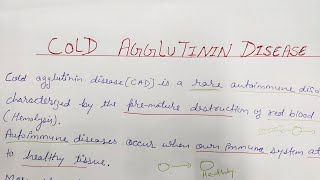 COLD AGGLUTININ DISEASE
Cold agglutinin disease [CAD] is a rare autoimmune diso
characterized by the pre-mature destruction of red blood
(Hemolysis).
Autoimmune diseases occur when our immune system at
to healthy tissue.
Healthy